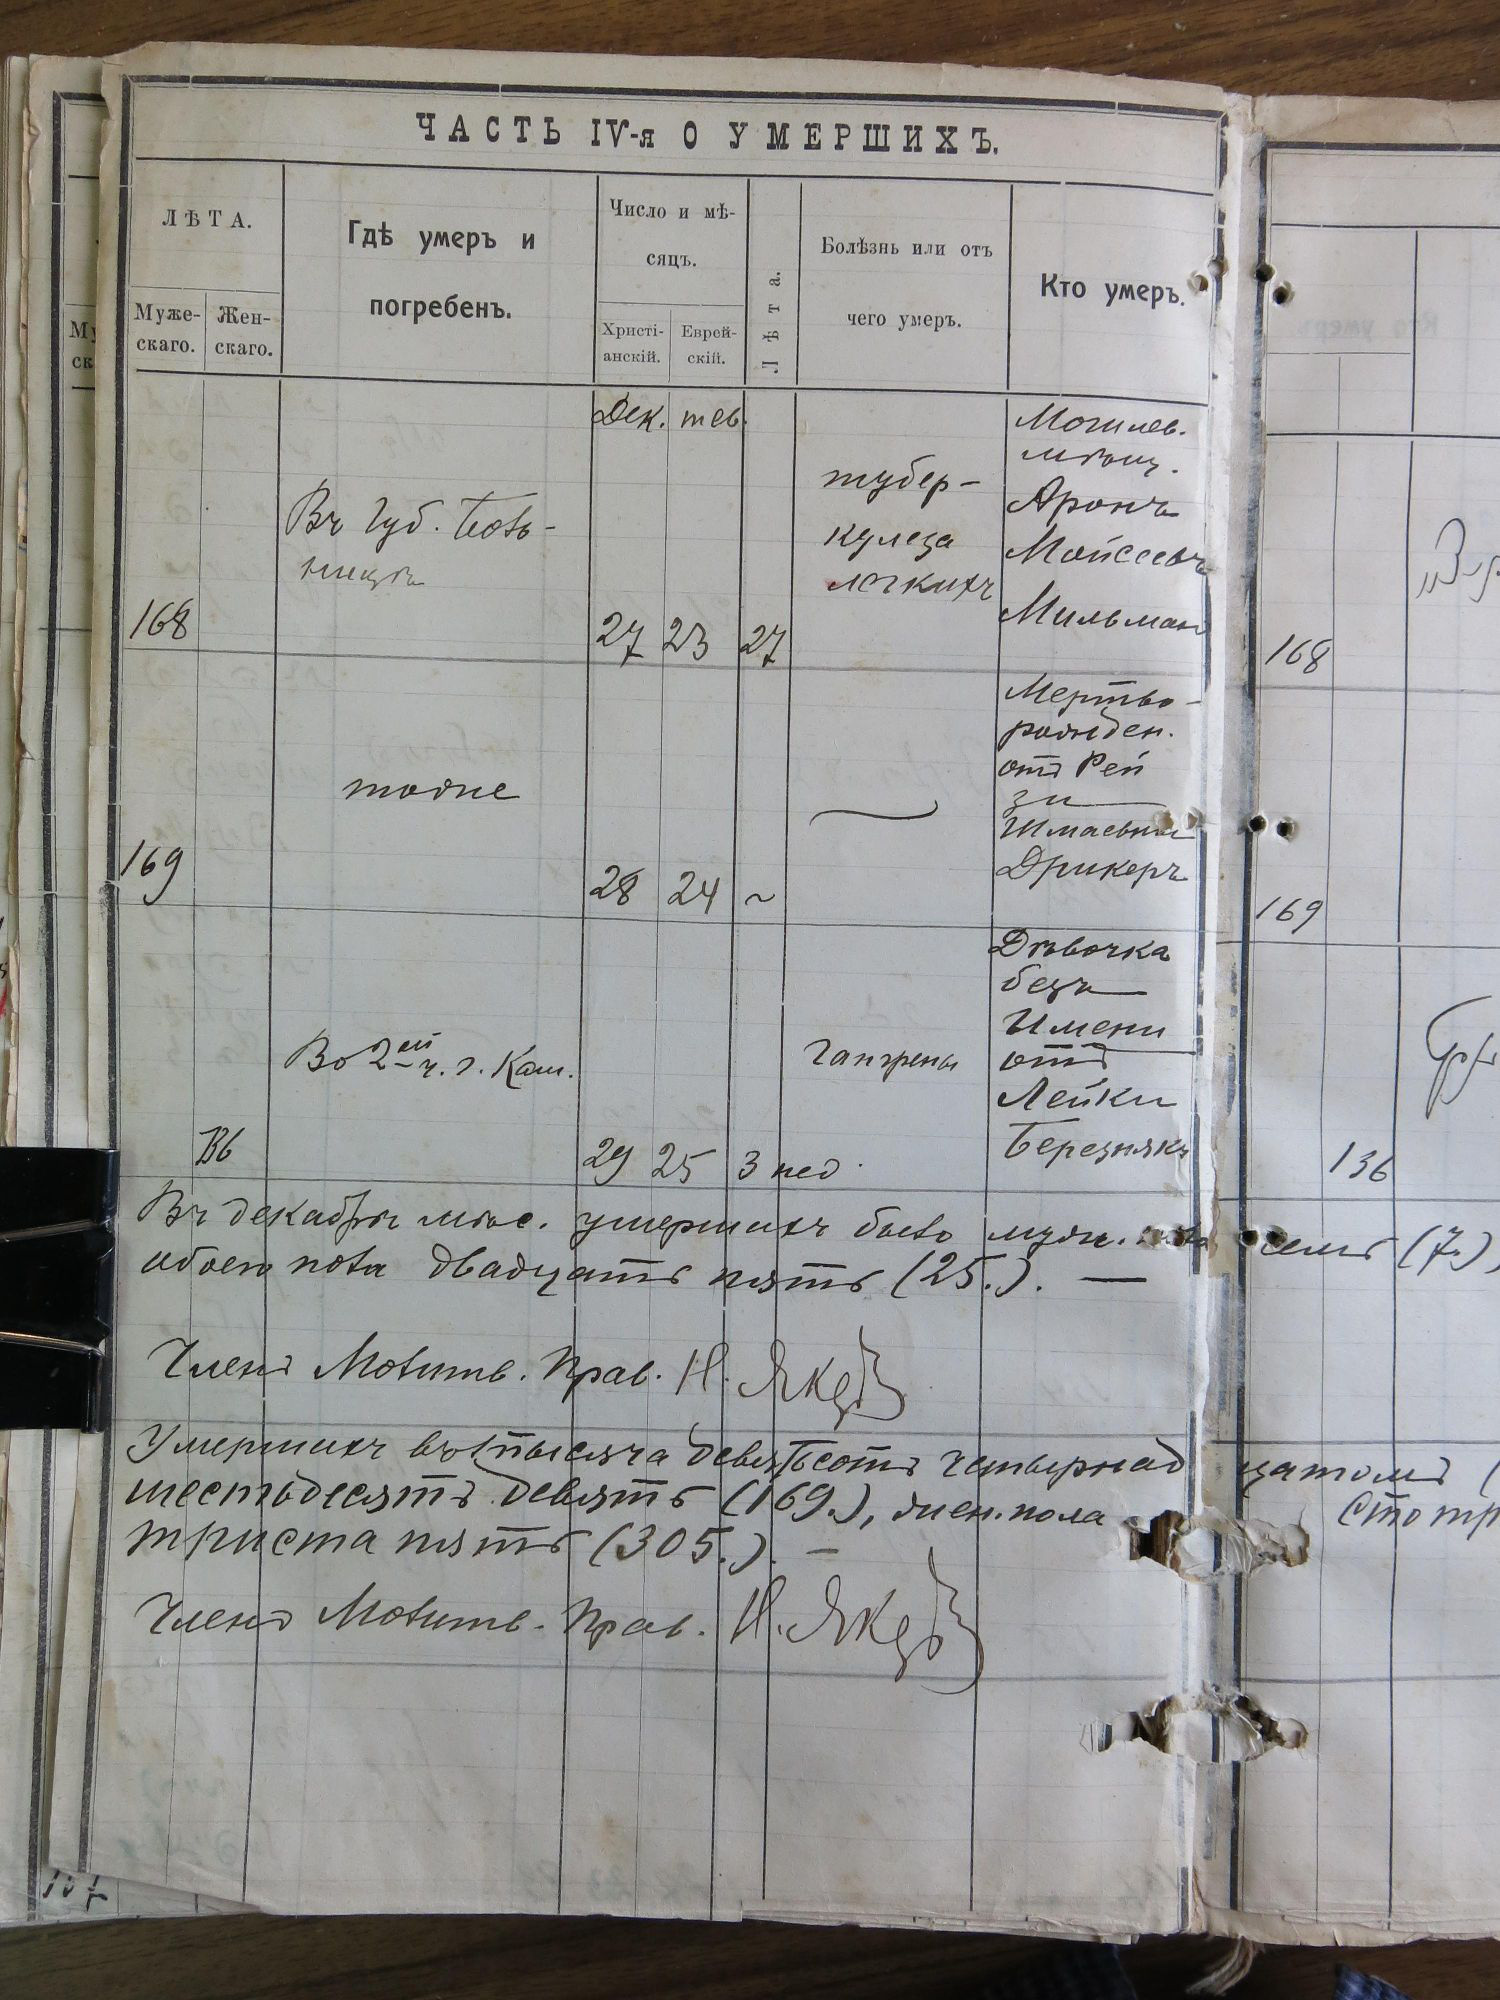 ЧАСТЬ IV-я О УМЕРШИХЪ.
ЛѢТА.
Муже-
скаго.
Жен-
скаго.
Гдѣ умеръ и
погребенъ.
Число и мѣ-
сяцъ.
Христі-
анскій.
Еврей-
скій.
Лѣта.
Болѣзнь или отъ
чего умеръ.
Кто умеръ.
Дек. тев.
168
Въ Губ. Боль-
ницѣ
27 23 27
тубер-
кулеза
легкихъ
Могилев.
мѣщ.
Аронъ
Мойсеевъ
Мильман
168
169
тоже
28 24 ~
Мертво-
рожден.
отъ Рей
зи
Шмаевны
Дрикеръ
169
Во 2ей ч. г. Кам.
29 25 3 нед.
Гангрены
Дѣвочка
безъ
Имени
отъ
Лейки
Березнякъ
136
Въ декабрѣ мѣс. умершихъ было муж. семь (7.),
обоего пола двадцать пять (25.). —
Членъ Молитв. Прав. Н.
Умершихъ въ тысяча девятьсотъ четырнадцатомъ (
шестьдесятъ девять (169.), жен. пола Сто тр
триста пять (305.). —
Членъ Молитв. Прав. Н.